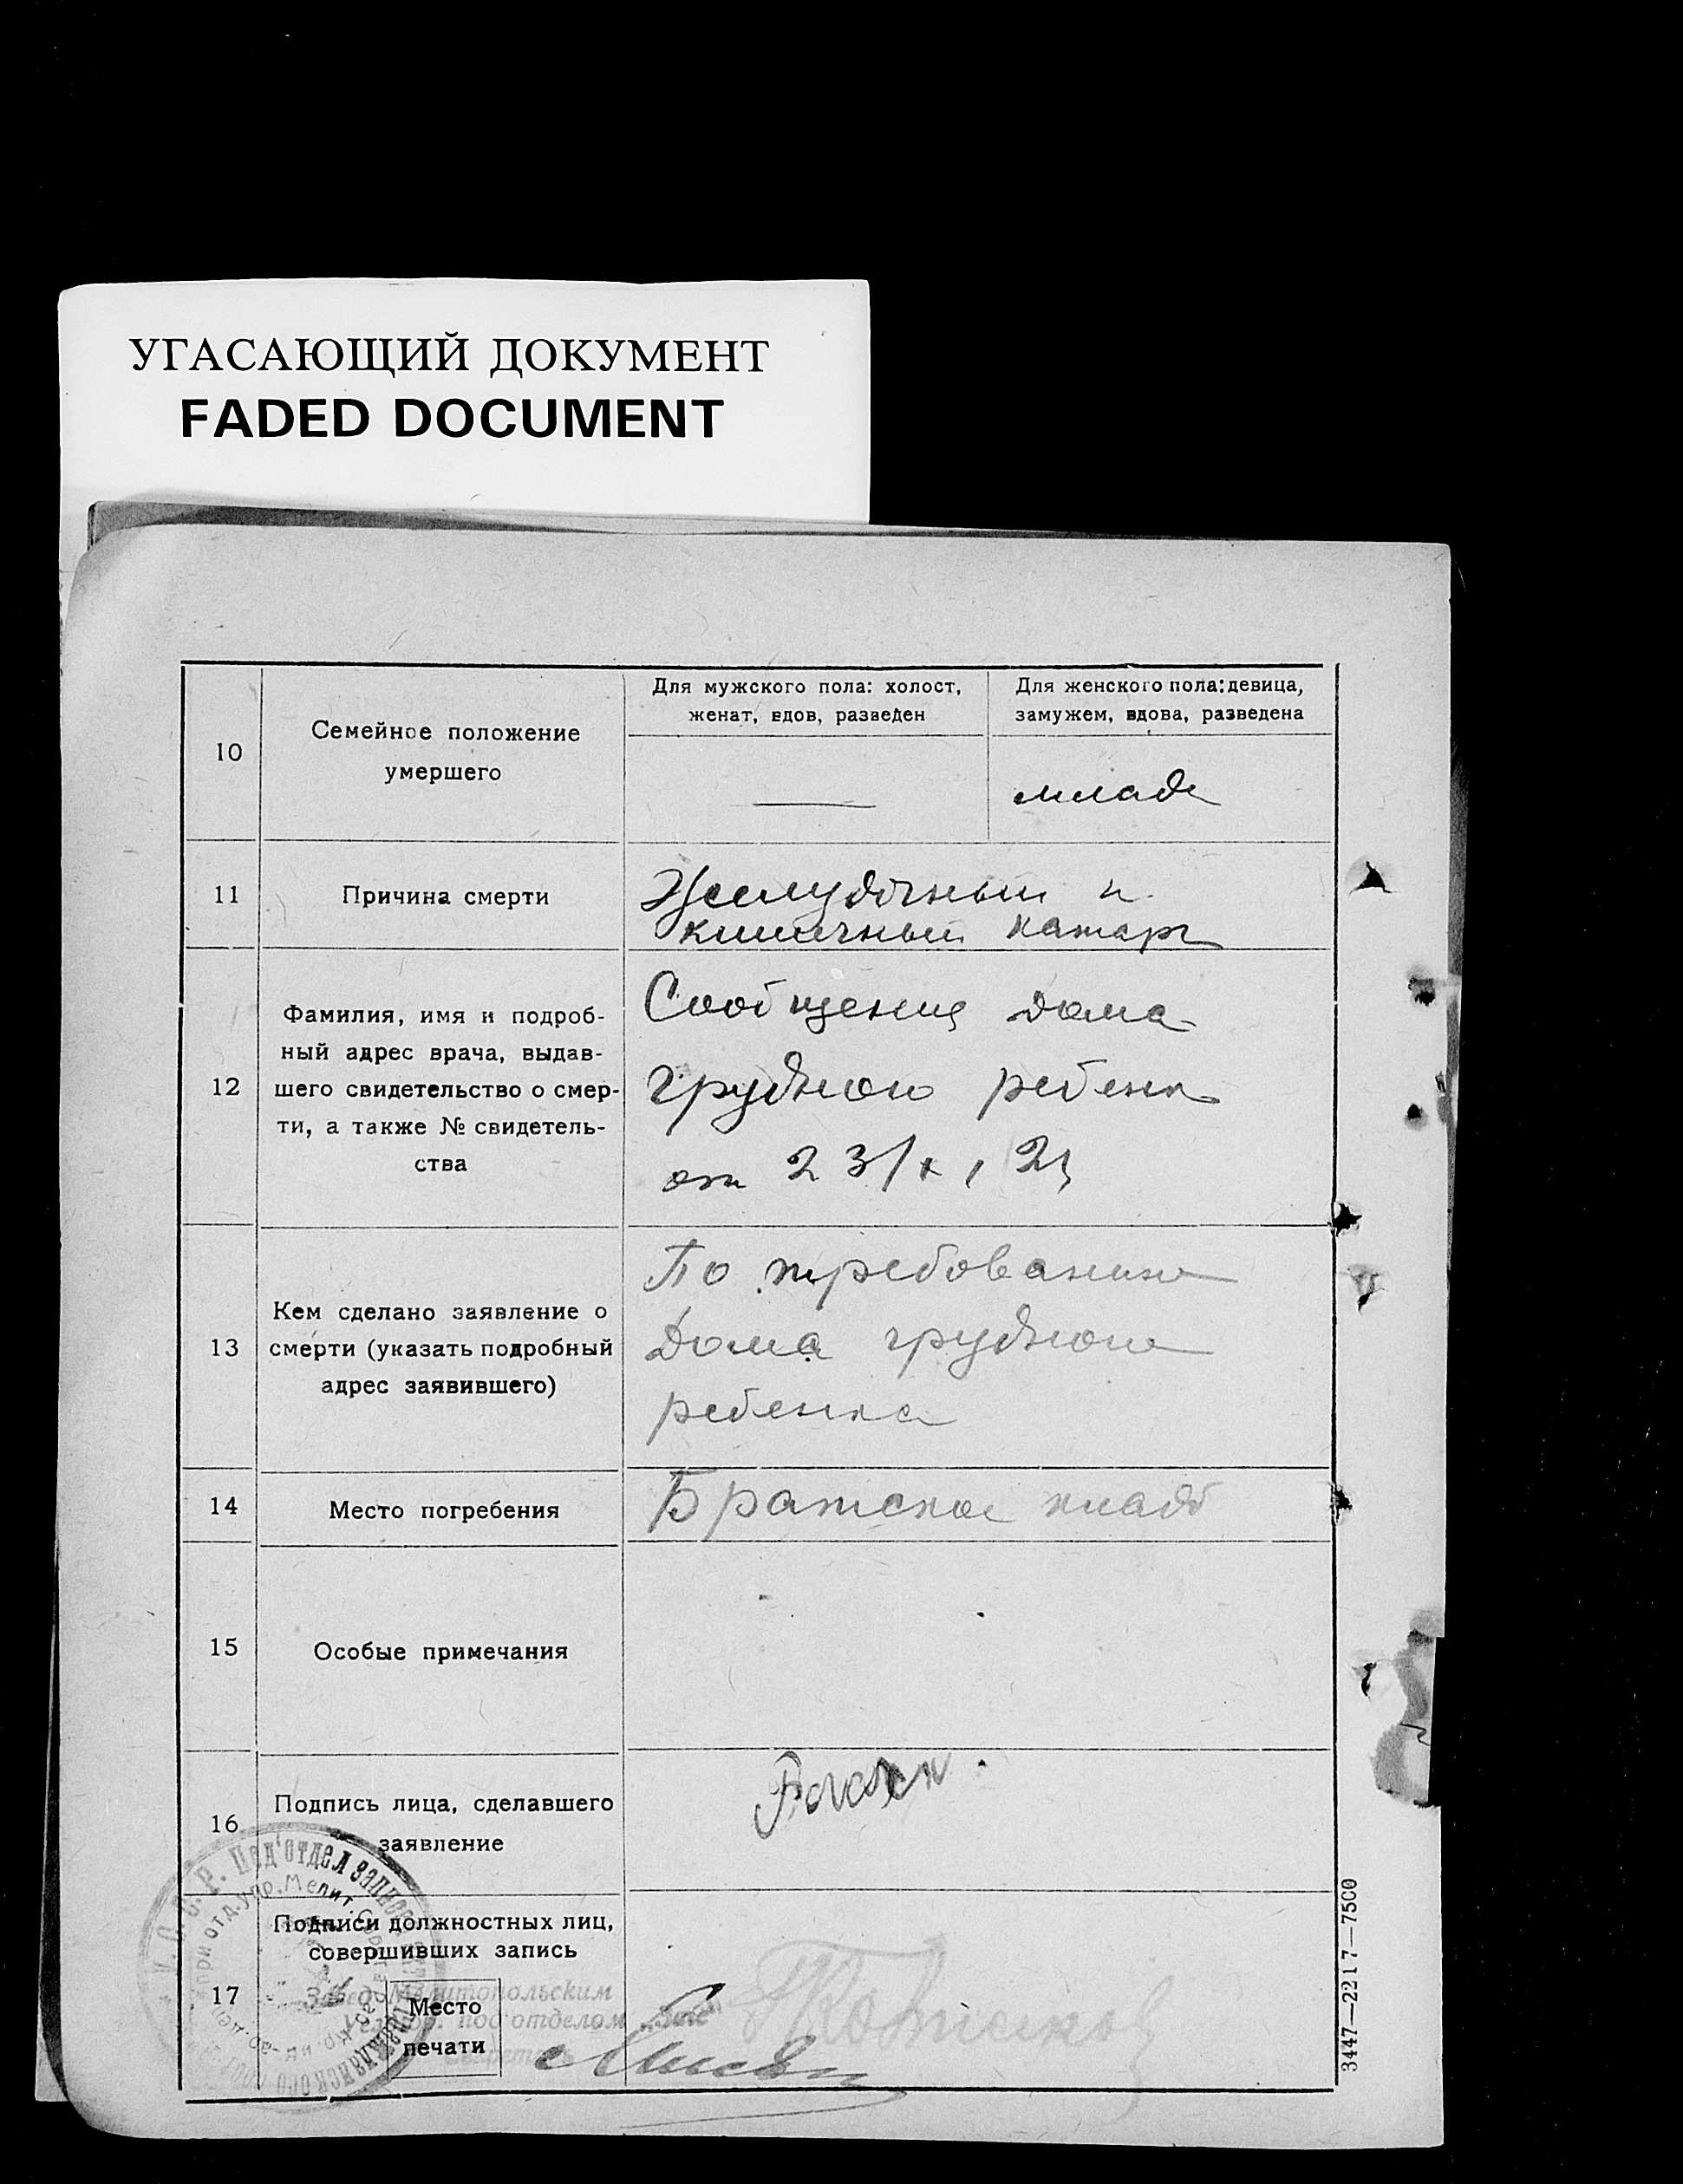 УГАСАЮЩИЙ ДОКУМЕНТ
FADED DOCUMENT
10
Семейное положение
умершего
Для мужского пола: холост,
женат, вдов, разведен
Для женского пола: девица,
замужем, вдова, разведена
младе
11
Причина смерти
Желудочный и
кишечный катарр
12
Фамилия, имя и подроб-
ный адрес врача, выдав-
шего свидетельство о смер-
ти, а также № свидетель-
ства
Сообщение дома
грудного ребенк
от 23/х
13
Кем сделано заявление о
смерти (указать подробный
адрес заявившего)
По требованию
Дома грудного
ребенка
14
Место погребения
Братское кладб
15
Особые примечания
16
Подпись лица, сделавшего
заявление
17
Подписи должностных лиц,
совершивших запись
Место
печати
Завед. Мелитопольским
под'отделом
Под'отдел запис
при отд. Упр. Мелит.
3447—2217—7500